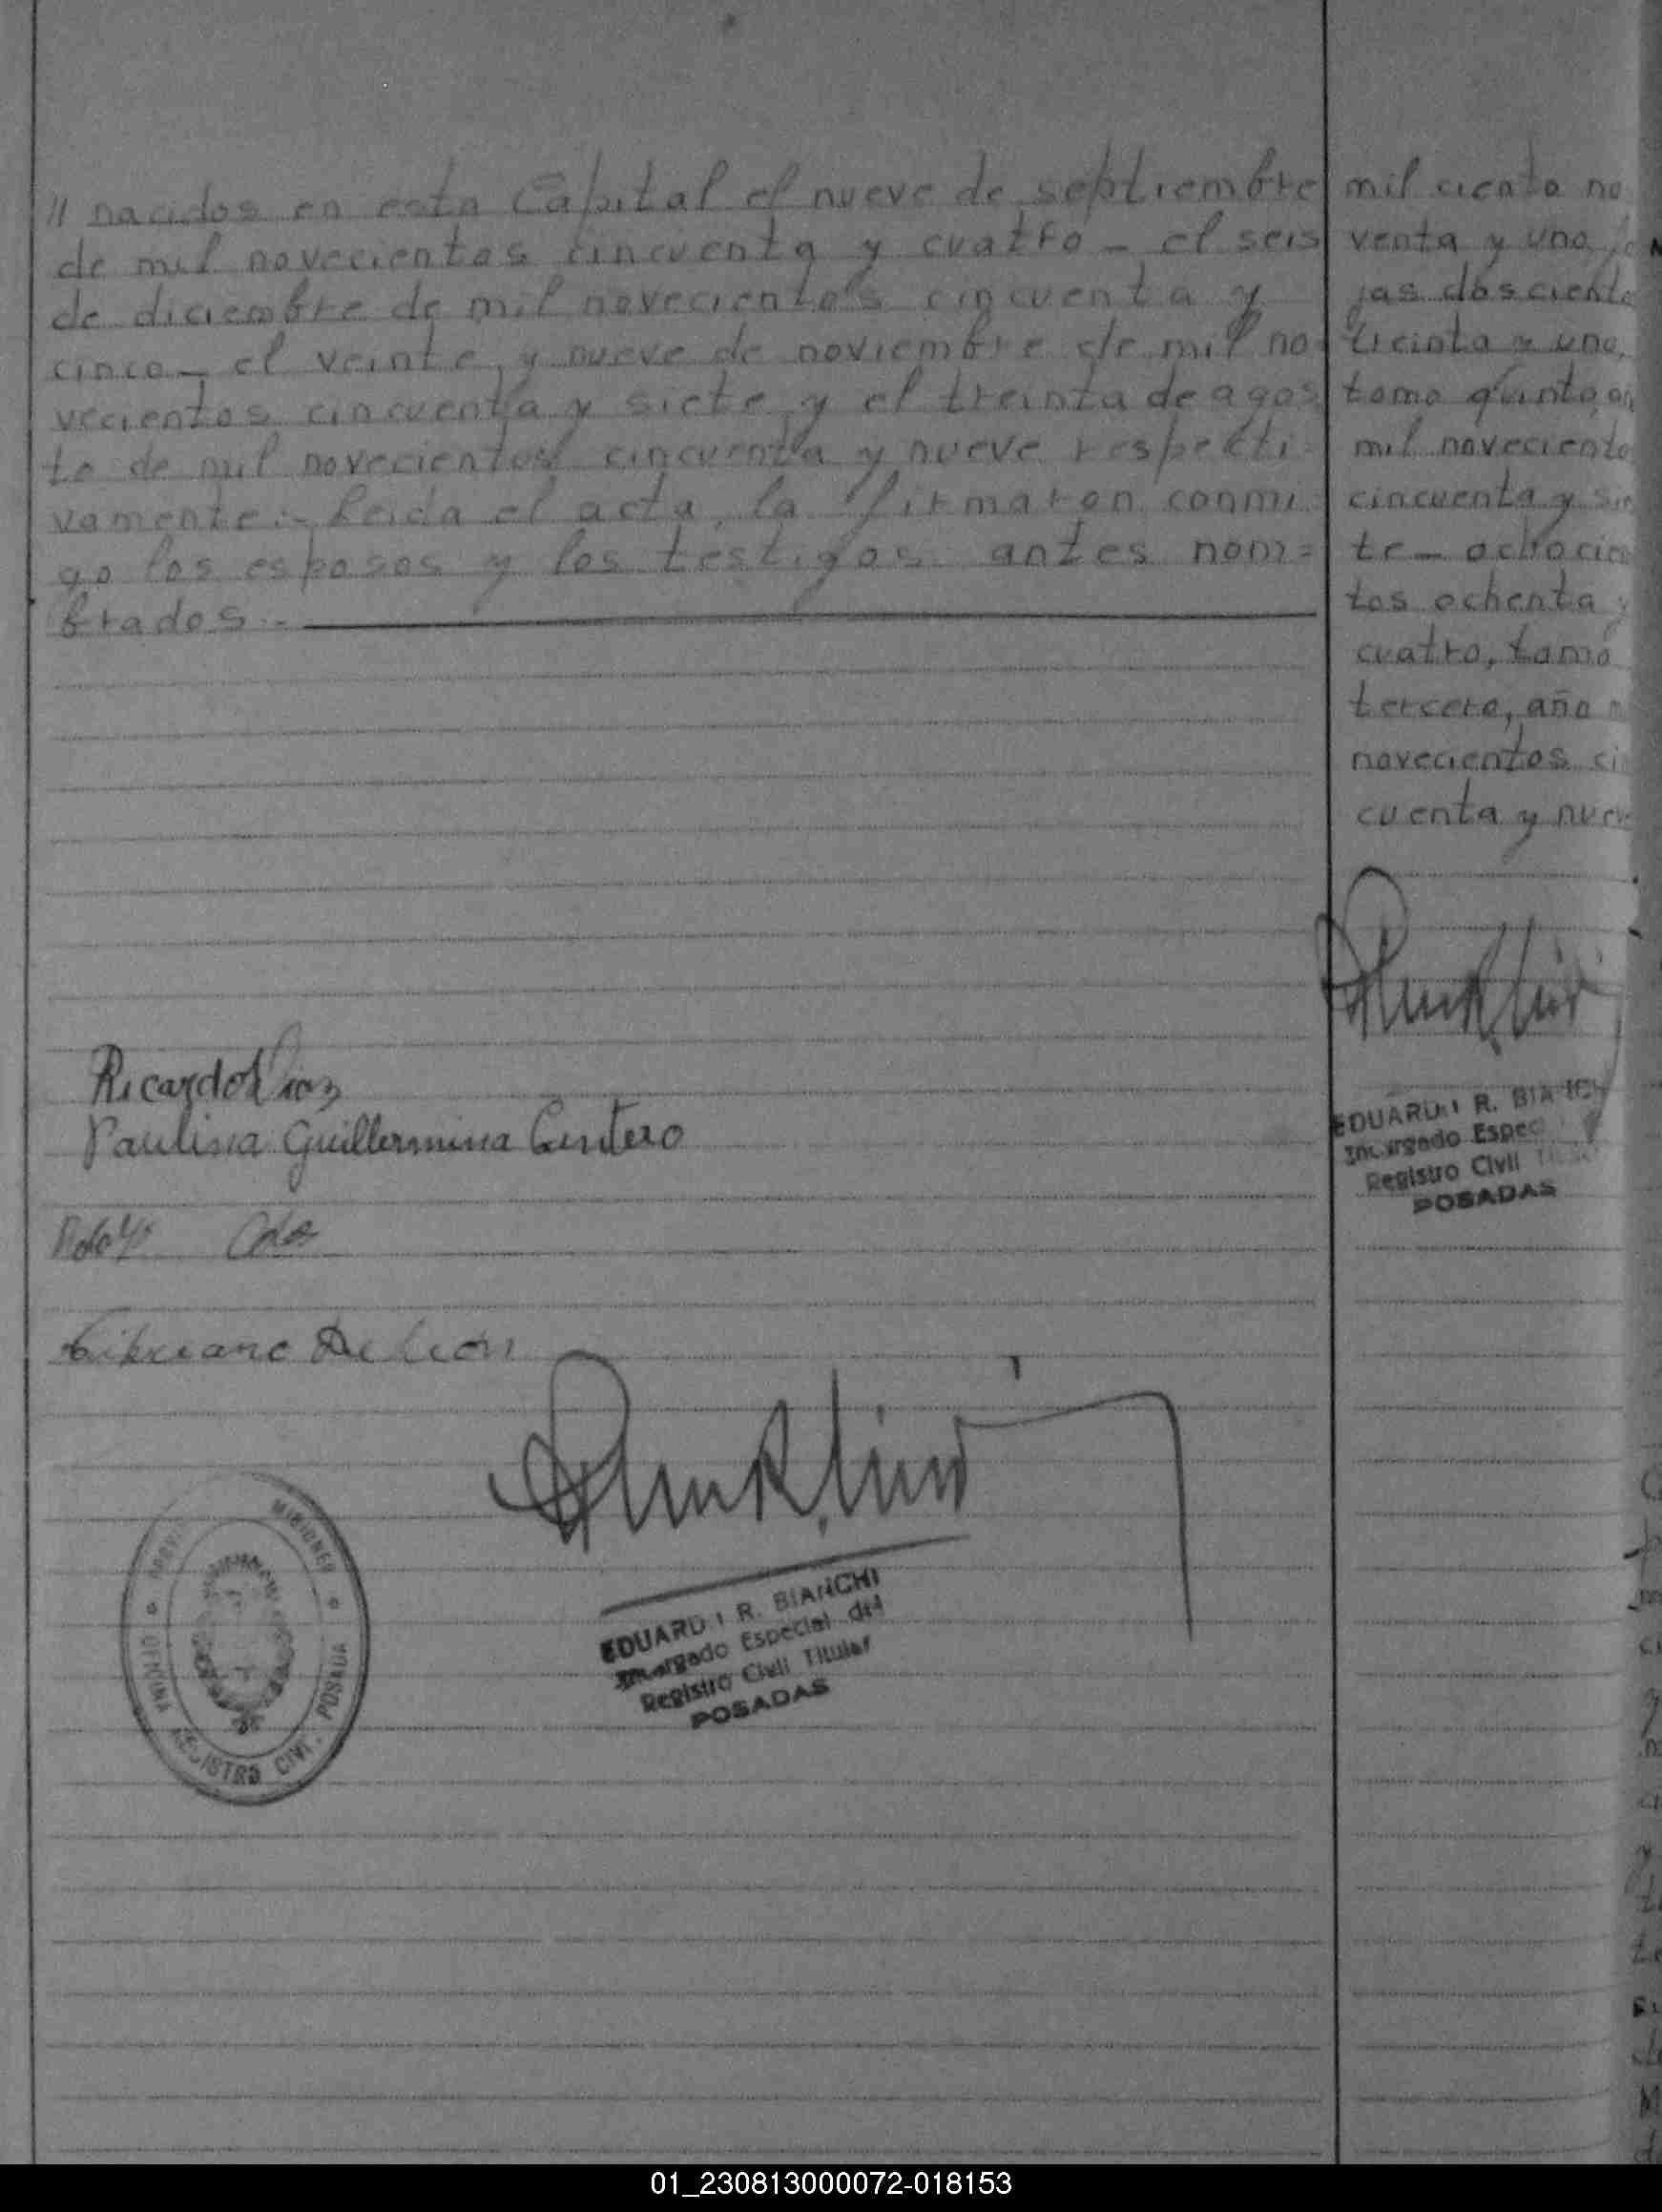 // nacidos en esta Capital el nueve de septiembre
de mil novecientos cincuenta y cuatro - el seis
de diciembre de mil novecientos cincuenta y
cinco - el veinte y nueve de noviembre de mil no-
vecientos cincuenta y siete y el treinta de agos
to de mil novecientos cincuenta y nueve respecti-
vamente.- Leida el acta, la firmaron conmi-
go los esposos y los testigos antes nom=
brados.-
mil ciento no
venta y uno, fo
jas doscient
treinta y uno,
tomo quinto,
mil noveciento
cincuenta y sie
te - ochocien
tos ochenta y
cuatro, tomo
tercero, año m
novecientos cin
cuenta y nuev
EDUARDO R. BIANCHI
Encargado Espec
Registro Civil Titular
POSADAS
Ricardo
Paulina Guillermina Centero
Cipriano De León
EDUARDO R. BIANCHI
Encargado Especial del
Registro Civil Titular
POSADAS
MISIONES
OFICINA REGISTRO CIVIL POSADA
01_230813000072-018153